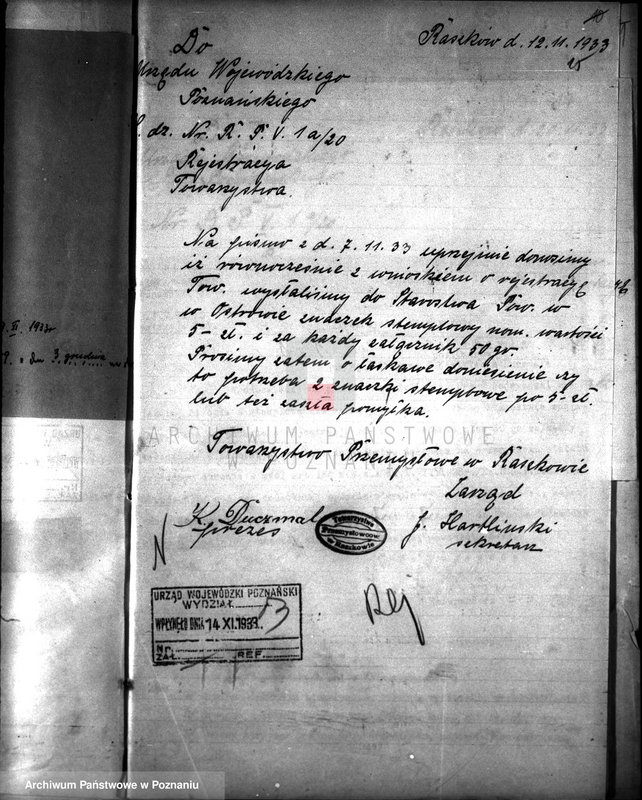 Raszków d. 12.11.1933
Do
Urzędu Wojewódzkiego
Poznańskiego
L. dz. Nr. R. P. V. 1a/20
Rejestracja
Towarzystwa.
Na pismo z d. 7.11.33 uprzejmie donosimy
iż równocześnie z wnioskiem o rejestrację
Tow. wysłaliśmy do Starostwa Pow. w
w Ostrowie znaczek stemplowy nom. wartości
5- zł. i za każdy załącznik 50 gr.
Prosimy zatem o łaskawe doniesienie czy
to potrzeba 2 znaczki stemplowe po 5- zł.
lub też zaszła pomyłka.
ARCHIWUM PAŃSTWOWE
W POZNANIU
Towarzystwo Przemysłowe w Raszkowie
Zarząd
K. Duczmal
prezes
Towarzystwo
Przemysłowców
w Raszkowie
J. Hartliński
sekretarz
N
Rej
URZĄD WOJEWÓDZKI POZNAŃSKI
WYDZIAŁ
WPŁYNĘŁO DNIA 14 XI. 1933
Nr.
ZAŁ. REF.
1933r
3 grudnia
Archiwum Państwowe w Poznaniu